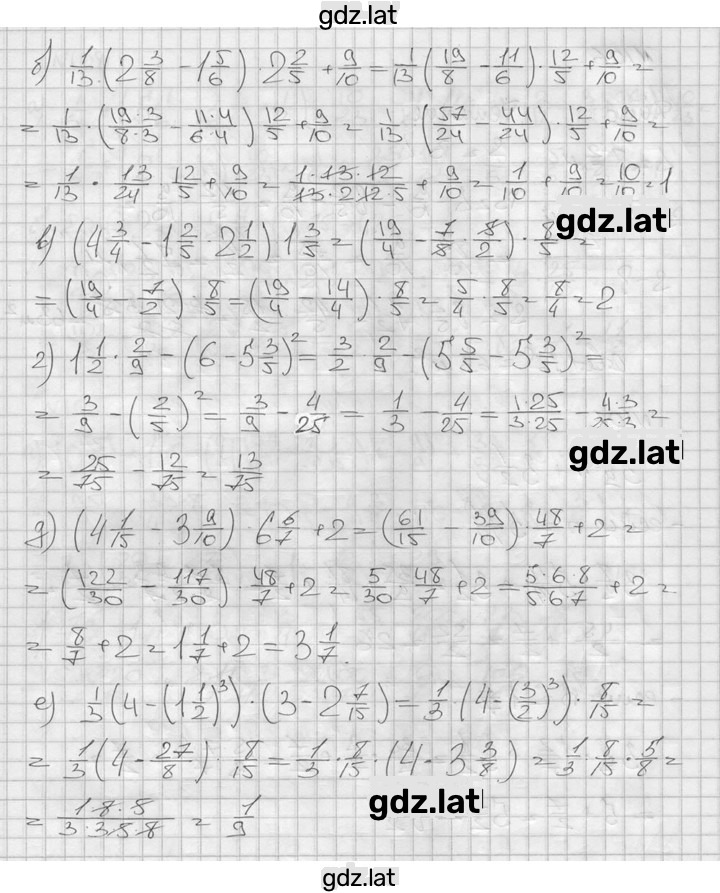 gdz.lat
б) 1/13 · (2 3/8 - 1 5/6) · 2 2/5 + 9/10 = 1/13 (19/8 - 11/6) · 12/5 + 9/10 =
= 1/13 · (19·3/8·3 - 11·4/6·4) 12/5 + 9/10 = 1/13 · (57/24 - 44/24) · 12/5 + 9/10 =
= 1/13 · 13/24 · 12/5 + 9/10 = 1·13·12/13·2·12·5 + 9/10 = 1/10 + 9/10 = 10/10 = 1
gdz.lat
в) (4 3/4 - 1 2/5 · 2 1/2) · 1 3/5 = (19/4 - 7/5 · 5/2) · 8/5 =
= (19/4 - 7/2) · 8/5 = (19/4 - 14/4) · 8/5 = 5/4 · 8/5 = 8/4 = 2
г) 1 1/2 · 2/9 - (6 - 5 3/5)² = 3/2 · 2/9 - (5 5/5 - 5 3/5)² =
= 3/9 - (2/5)² = 3/9 - 4/25 = 1/3 - 4/25 = 1·25/3·25 - 4·3/25·3 =
gdz.lat
= 25/75 - 12/75 = 13/75
д) (4 1/15 - 3 9/10) · 6 6/7 + 2 = (61/15 - 39/10) · 48/7 + 2 =
= (122/30 - 117/30) · 48/7 + 2 = 5/30 · 48/7 + 2 = 5·6·8/5·6·7 + 2 =
= 8/7 + 2 = 1 1/7 + 2 = 3 1/7.
е) 1/3 (4 - (1 1/2)³) · (3 - 2 7/15) = 1/3 · (4 - (3/2)³) · 8/15 =
= 1/3 (4 - 27/8) · 8/15 = 1/3 · 8/15 · (4 - 3 3/8) = 1/3 · 8/15 · 5/8 =
gdz.lat
= 1·8·5/3·3·5·8 = 1/9
gdz.lat